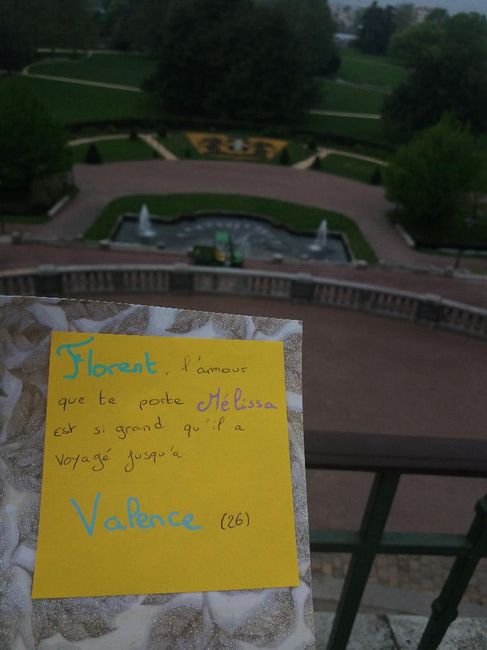 Florent, l'amour
que te porte Mélissa
est si grand qu'il a
voyagé jusqu'à
Valence (26)